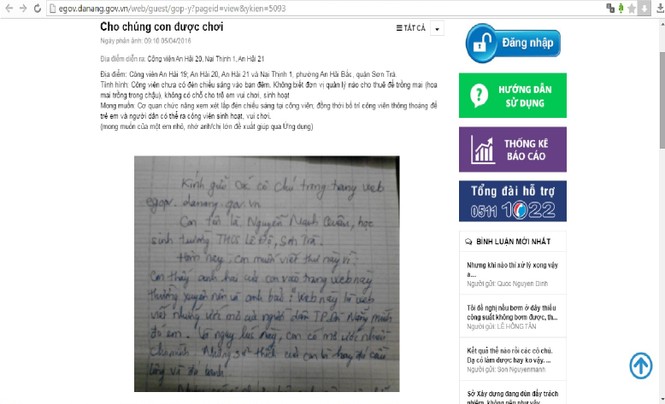 egov.danang.gov.vn/web/guest/gop-y?pageid=view&ykien=5093
Cho chúng con được chơi
TẤT CẢ
Ngày phản ánh: 09:18 05/04/2016
Địa điểm diễn ra: Công viên An Hải 20, Nại Thịnh 1, An Hải 21
Địa điểm: Công viên An Hải 19, An Hải 20, An Hải 21 và Nại Thịnh 1, phường An Hải Bắc, quận Sơn Trà.
Tình hình: Công viên chưa có đèn chiếu sáng vào ban đêm. Không biết đơn vị quản lý nào cho thuê để trồng mai (hoa
mai trồng trong chậu), không có chỗ cho trẻ em vui chơi, sinh hoạt
Mong muốn: Cơ quan chức năng xem xét lắp đèn chiếu sáng tại công viên, đồng thời bố trí công viên thông thoáng để
trẻ em và người dân có thể ra công viên sinh hoạt, vui chơi.
(mong muốn của một em nhỏ, nhờ anh/chị lớn đề xuất giúp qua Ứng dụng)
Kính gửi các cô chú trong trang web
egov.danang.gov.vn
Con tên là Nguyễn Mạnh Quân, học
sinh trường THCS Lê Độ, Sơn Trà.
Hôm nay, con muốn viết thư này vì
Con thấy anh hai của con vào trang web này
thường xuyên nên và anh bảo: Web này là web
viết những ước mơ của người dân TP. Đà Nẵng muốn
đó em. Và ngay lúc này, con có mơ ước nhỏ
Những sở thích của con là hay đá cầu
lông và đá banh
Đăng nhập
HƯỚNG DẪN
SỬ DỤNG
THỐNG KÊ
BÁO CÁO
Tổng đài hỗ trợ
0511 1022
BÌNH LUẬN MỚI NHẤT
Nhưng khi nào thì xử lý xong vậy
ạ...
Người gửi: Quoc Nguyen Dinh
Tôi đề nghị nếu bơm ở đây thiếu
công suất không bơm được, th...
Người gửi: LÊ HỒNG TÂN
Kết quả thế nào rồi các cô chú.
Dạ có làm được hay ko vậy....
Người gửi: Son Nguyenmanh
Sở Xây dựng đang đùn đẩy trách
nhiệm, không nên như vậy